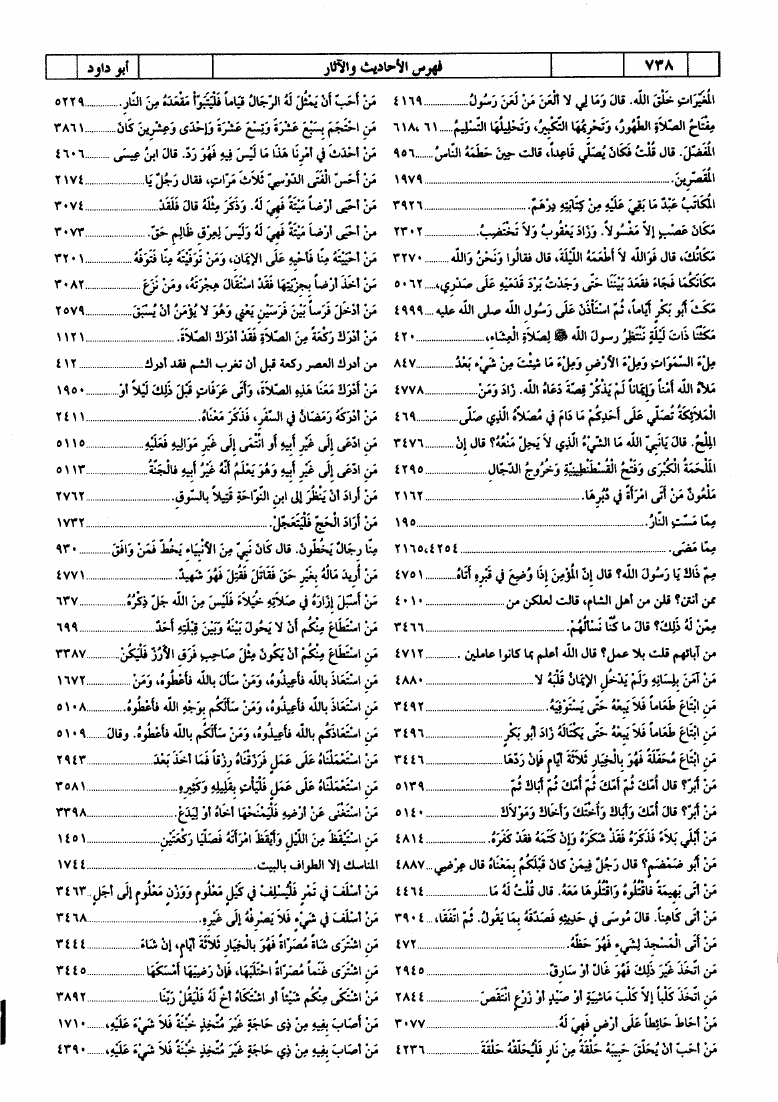 ٧٣٨
فهرس الأحاديث والآثار
أبو داود
المُغَيِّرَاتِ خَلْقَ الله. قالَ وَمَا لِي لا ألْعَنُ مَنْ لَعَنَ رَسُولُ ..... ٤١٦٩
مِفْتَاحُ الصَّلاَةِ الطّهُورُ، وَتَحْرِيمُهَا التَّكْبِيرُ، وَتَحْلِيلُهَا التّسْلِيمُ ..... ٦١، ٦١٨
المُفَصّلَ. قال قُلْتُ فَكَانَ يُصَلّي قَاعِداً، قالت حِينَ حَطَمَهُ النّاسُ ..... ٩٥٦
المُقَصّرِينَ. ..... ١٩٧٩
المُكَاتَبُ عَبْدٌ مَا بَقِيَ عَلَيْهِ مِنْ كِتَابَتِهِ دِرْهَمٌ. ..... ٣٩٢٦
مَكَانَ عَصْبٍ إلاّ مَغْسُولاً. وَزَادَ يَعْقُوبُ وَلاَ تَخْتَضِبُ. ..... ٢٣٠٢
مَكَانُكَ، قال فَوَالله لاَ أطْعَمُهُ اللّيْلَةَ، قال فقالُوا وَنَحْنُ وَالله ..... ٣٢٧٠
مَكَانَكُمَا فَجَاءَ فقَعَدَ بَيْنَنَا حَتّى وَجَدْتُ بَرْدَ قَدَمَيْهِ عَلَى صَدْرِي، ..... ٥٠٦٢
مَكَثَ أبو بَكْرٍ أيّاماً، ثُمّ اسْتَأْذَنَ عَلَى رَسُولِ الله صلى الله عليه ..... ٤٩٩٩
مَكَثْنَا ذَاتَ لَيْلَةٍ نَنْتَظِرُ رسولَ الله ﷺ لِصَلاَةِ الْعِشَاءِ، ..... ٤٢٠
مِلْءَ السَّمَوَاتِ وَمِلْءَ الأرْضِ وَمِلْءَ مَا شِئْتَ مِنْ شَيْءٍ بَعْدُ ..... ٨٤٧
مَلأَهُ الله أمْناً وَإِيمَاناً لَمْ يَذْكُرْ قِصّةَ دَعَاهُ الله. زَادَ وَمَنْ ..... ٤٧٧٨
الْمَلاَئِكَةُ تُصَلّي عَلَى أحَدِكُمْ مَا دَامَ فِي مُصَلاّهُ الّذِي صَلّى ..... ٤٦٩
المِلْحُ. قالَ يَانَبِيّ الله مَا الشّيْءُ الّذِي لاَ يَحِلّ مَنْعُهُ؟ قال إنْ ..... ٣٤٧٦
المَلْحَمَةُ الْكُبْرَى وَفَتْحُ الْقُسْطَنْطِينِيّةِ وَخُرُوجُ الدّجّالِ ..... ٤٢٩٥
مَلْعُونٌ مَنْ أتَى امْرَأةً في دُبُرِهَا. ..... ٢١٦٢
مِمّا مَسّتِ النّارُ. ..... ١٩٥
مِمّا مَضَى. ..... ٢١٦٥،٤٢٥٤
مِمّ ذَاكَ يَا رَسُولَ الله؟ قال إنّ المُؤْمِنَ إذَا وُضِعَ في قَبْرِهِ أتَاهُ ..... ٤٧٥١
ممن أنتن؟ قلن من أهل الشام، قالت لعلكن من ..... ٤٠١٠
مِمّنْ لَهُ ذلِكَ؟ قالَ مَا كُنّا نَسْألُهُمْ. ..... ٣٤٦٦
من آبائهم قلت بلا عمل؟ قال الله أعلم بما كانوا عاملين ..... ٤٧١٢
مَنْ آمَنَ بِلِسَانِهِ وَلَمْ يَدْخُلِ الإيمَانُ قَلْبَهُ لا ..... ٤٨٨٠
مَنِ ابْتَاعَ طَعَاماً فَلاَ يَبِعْهُ حَتّى يَسْتَوْفِيَهُ. ..... ٣٤٩٢
مَنِ ابْتَاعَ طَعَاماً فَلاَ يَبِعْهُ حَتّى يَكْتَالَهُ زَادَ أبُو بَكْرٍ ..... ٣٤٩٦
مَنِ ابْتَاعَ مُحَفّلَةً فَهُوَ بِالْخِيَارِ ثَلاَثَةَ أيّامٍ فإنْ رَدّهَا ..... ٣٤٤٦
مَنْ أبَرّ؟ قال أُمّكَ ثُمّ أُمّكَ ثُمّ أُمّكَ ثُمّ أبَاكَ ثُمّ ..... ٥١٣٩
مَنْ أبَرّ؟ قال أُمّكَ وَأبَاكَ وَأُخْتَكَ وَأخَاكَ وَمَوْلاَكَ ..... ٥١٤٠
مَنْ أُبْلِيَ بَلاَءً فَذَكَرَهُ فَقَدْ شَكَرَهُ وَإنْ كَتَمَهُ فَقَدْ كَفَرَهُ. ..... ٤٨١٤
مَنْ أبُو ضَمْضَمٍ؟ قال رَجُلٌ فِيمَنْ كَانَ قَبْلَكُمْ بِمَعْنَاهُ قال عِرْضِي ..... ٤٨٨٧
مَنْ أتَى بَهِيمَةً فَاقْتُلُوهُ وَاقْتُلُوهَا مَعَهُ. قال قُلْتُ لَهُ مَا ..... ٤٤٦٤
مَنْ أتَى كَاهِناً. قال مُوسَى في حَدِيثِهِ فَصَدّقَهُ بِمَا يَقُولُ. ثُمّ اتّفَقَا، ..... ٣٩٠٤
مَنْ أتَى المَسْجِدَ لِشَيْءٍ فَهُوَ حَظّهُ. ..... ٤٧٢
مَنِ اتّخَذَ غَيْرَ ذلِكَ فَهُوَ غَالّ أوْ سَارِقٌ. ..... ٢٩٤٥
مَنِ اتّخَذَ كَلْباً إلاّ كَلْبَ مَاشِيَةٍ أوْ صَيْدٍ أوْ زَرْعٍ انْتَقَصَ ..... ٢٨٤٤
مَنْ أحَاطَ حَائِطاً عَلَى أرْضٍ فَهِيَ لَهُ. ..... ٣٠٧٧
مَنْ أحَبّ أنْ يُحَلّقَ حَبِيبَهُ حَلْقَةً مِنْ نَارٍ فَلْيُحَلّقْهُ حَلْقَةً ..... ٤٢٣٦
مَنْ أحَبّ أنْ يَمْثُلَ لَهُ الرّجَالُ قِيَاماً فَلْيَتَبَوّأْ مَقْعَدَهُ مِنَ النّارِ. ..... ٥٢٢٩
مَنِ احْتَجَمَ بِسَبْعَ عَشْرَةَ وَتِسْعَ عَشْرَةَ وَإحْدَى وَعِشْرِينَ كَانَ ..... ٣٨٦١
مَنْ أحْدَثَ في أمْرِنَا هَذَا مَا لَيْسَ فِيهِ فَهُوَ رَدّ. قالَ ابنُ عِيسَى ..... ٤٦٠٦
مَنْ أحَسّ الْفَتَى الدّوْسِيّ ثَلاَثَ مَرّاتٍ، فقال رَجُلٌ يَا ..... ٢١٧٤
مَنْ أحْيَى أرْضاً مَيْتَةً فَهِيَ لَهُ. وَذَكَرَ مِثْلَهُ قالَ فَلَقَدْ ..... ٣٠٧٤
مَنْ أحْيَى أرْضاً مَيْتَةً فَهِيَ لَهُ وَلَيْسَ لِعِرْقٍ ظَالِمٍ حَقّ. ..... ٣٠٧٣
مَنْ أحْيَيْتَهُ مِنّا فَأحْيِهِ عَلَى الإيمَانِ، وَمَنْ تَوَفّيْتَهُ مِنّا فَتَوَفّهُ ..... ٣٢٠١
مَنْ أخَذَ أرْضاً بِجِزْيَتِهَا فَقَدْ اسْتَقَالَ هِجْرَتَهُ، وَمَنْ نَزَعَ ..... ٣٠٨٢
مَنْ أدْخَلَ فَرَساً بَيْنَ فَرَسَيْنِ يَعْنِي وَهُوَ لاَ يُؤْمَنُ أنْ يُسْبَقَ ..... ٢٥٧٩
مَنْ أدْرَكَ رَكْعَةً مِنَ الصّلاَةِ فَقَدْ أدْرَكَ الصّلاَةَ. ..... ١١٢١
من أدرك العصر ركعة قبل أن تغرب الشم فقد أدرك ..... ٤١٢
مَنْ أدْرَكَ مَعَنَا هَذِهِ الصّلاَةَ، وَأتَى عَرَفَاتٍ قَبْلَ ذَلِكَ لَيْلاً أوْ ..... ١٩٥٠
مَنْ أدْرَكَهُ رَمَضَانُ في السّفَرِ، فَذَكَرَ مَعْنَاهُ. ..... ٢٤١١
مَنِ ادّعَى إلَى غَيْرِ أبِيهِ أو انْتَمَى إلَى غَيْرِ مَوَالِيهِ فَعَلَيْهِ ..... ٥١١٥
مَنِ ادّعَى إلَى غَيْرِ أبِيهِ وَهُوَ يَعْلَمُ أنّهُ غَيْرُ أبِيهِ فالْجَنّةُ ..... ٥١١٣
مَنْ أرَادَ أنْ يَنْظُرَ إلى ابنِ النّوّاحَةِ قَتِيلاً بالسّوقِ. ..... ٢٧٦٢
مَنْ أرَادَ الْحَجّ فَلْيَتَعَجّلْ. ..... ١٧٣٢
مِنّا رِجَالٌ يَخُطّونَ. قال كَانَ نَبِيّ مِنَ الأنْبِيَاءِ يَخُطّ فَمَنْ وَافَقَ ..... ٩٣٠
مَنْ أُرِيدَ مَالُهُ بِغَيْرِ حَقّ فَقَاتَلَ فَقُتِلَ فَهُوَ شَهِيدٌ. ..... ٤٧٧١
مَنْ أسْبَلَ إزَارَهُ في صَلاَتِهِ خُيَلاَءَ فَلَيْسَ مِنَ الله جَلّ ذِكْرُهُ ..... ٦٣٧
مَنِ اسْتَطَاعَ مِنْكُم أنْ لا يَحُولَ بَيْنَهُ وَبَيْنَ قِبْلَتِهِ أحَدٌ ..... ٦٩٩
مَنِ اسْتَطَاعَ مِنْكُمْ أنْ يَكُونَ مِثْلَ صَاحِبِ فَرَقِ الأرُزّ فَلْيَكُنْ ..... ٣٣٨٧
مَنِ اسْتَعَاذَ بالله فأعِيذُوهُ، وَمَنْ سَألَ بالله فأعْطُوهُ، وَمَنْ ..... ١٦٧٢
مَنِ اسْتَعَاذَ بالله فأعِيذُوهُ، وَمَنْ سَألَكُم بِوَجْهِ الله فأعْطُوهُ. ..... ٥١٠٨
مَنِ اسْتَعَاذَكُم بالله فأعِيذُوهُ، وَمَنْ سَألَكُم بالله فأعْطُوهُ. وقالَ ..... ٥١٠٩
مَنِ اسْتَعْمَلْنَاهُ عَلَى عَمَلٍ فَرَزَقْنَاهُ رِزْقاً فَمَا أخَذَ بَعْدَ ..... ٢٩٤٣
مَنِ اسْتَعْمَلْنَاهُ عَلَى عَمَلٍ فَلْيَأْتِ بِقَلِيلِهِ وَكَثِيرِهِ ..... ٣٥٨١
مَنِ اسْتَغْنَى عَنْ أرْضِهِ فَلْيَمْنَحْهَا أخَاهُ أوْ لِيَدَعْ. ..... ٣٣٩٨
مَنِ اسْتَيْقَظَ مِنَ اللّيْلِ وَأيْقَظَ امْرَأتَهُ فَصَلّيَا رَكْعَتَيْنِ ..... ١٤٥١
المناسك إلا الطواف بالبيت. ..... ١٧٤٤
مَنْ أسْلَفَ في تَمْرٍ فَلْيُسْلِفْ في كَيْلٍ مَعْلُومٍ وَوَزْنٍ مَعْلُومٍ إلَى أجَلٍ ..... ٣٤٦٣
مَنْ أسْلَفَ في شَيْءٍ فَلاَ يَصْرِفْهُ إلَى غَيْرِهِ. ..... ٣٤٦٨
مَنِ اشْتَرَى شَاةً مُصَرّاةً فَهُوَ بِالْخِيَارِ ثَلاَثَةَ أيّامٍ، إنْ شَاءَ ..... ٣٤٤٤
مَنِ اشْتَرَى غَنَماً مُصَرّاةً احْتَلَبَهَا، فَإنْ رَضِيَهَا أمْسَكَهَا ..... ٣٤٤٥
مَنِ اشْتَكَى مِنْكُم شَيْئاً أو اشْتَكَاهُ أخٌ لَهُ فَلْيَقُلْ رَبّنَا ..... ٣٨٩٢
مَنْ أصَابَ بِفِيهِ مِنْ ذِي حَاجَةٍ غَيْرَ مُتّخِذٍ خُبْنَةً فَلاَ شَيْءَ عَلَيْهِ، ..... ١٧١٠
مَنْ أصَابَ بِفِيهِ مِنْ ذِي حَاجَةٍ غَيْرَ مُتّخِذٍ خُبْنَةً فَلاَ شَيْءَ عَلَيْهِ، ..... ٤٣٩٠